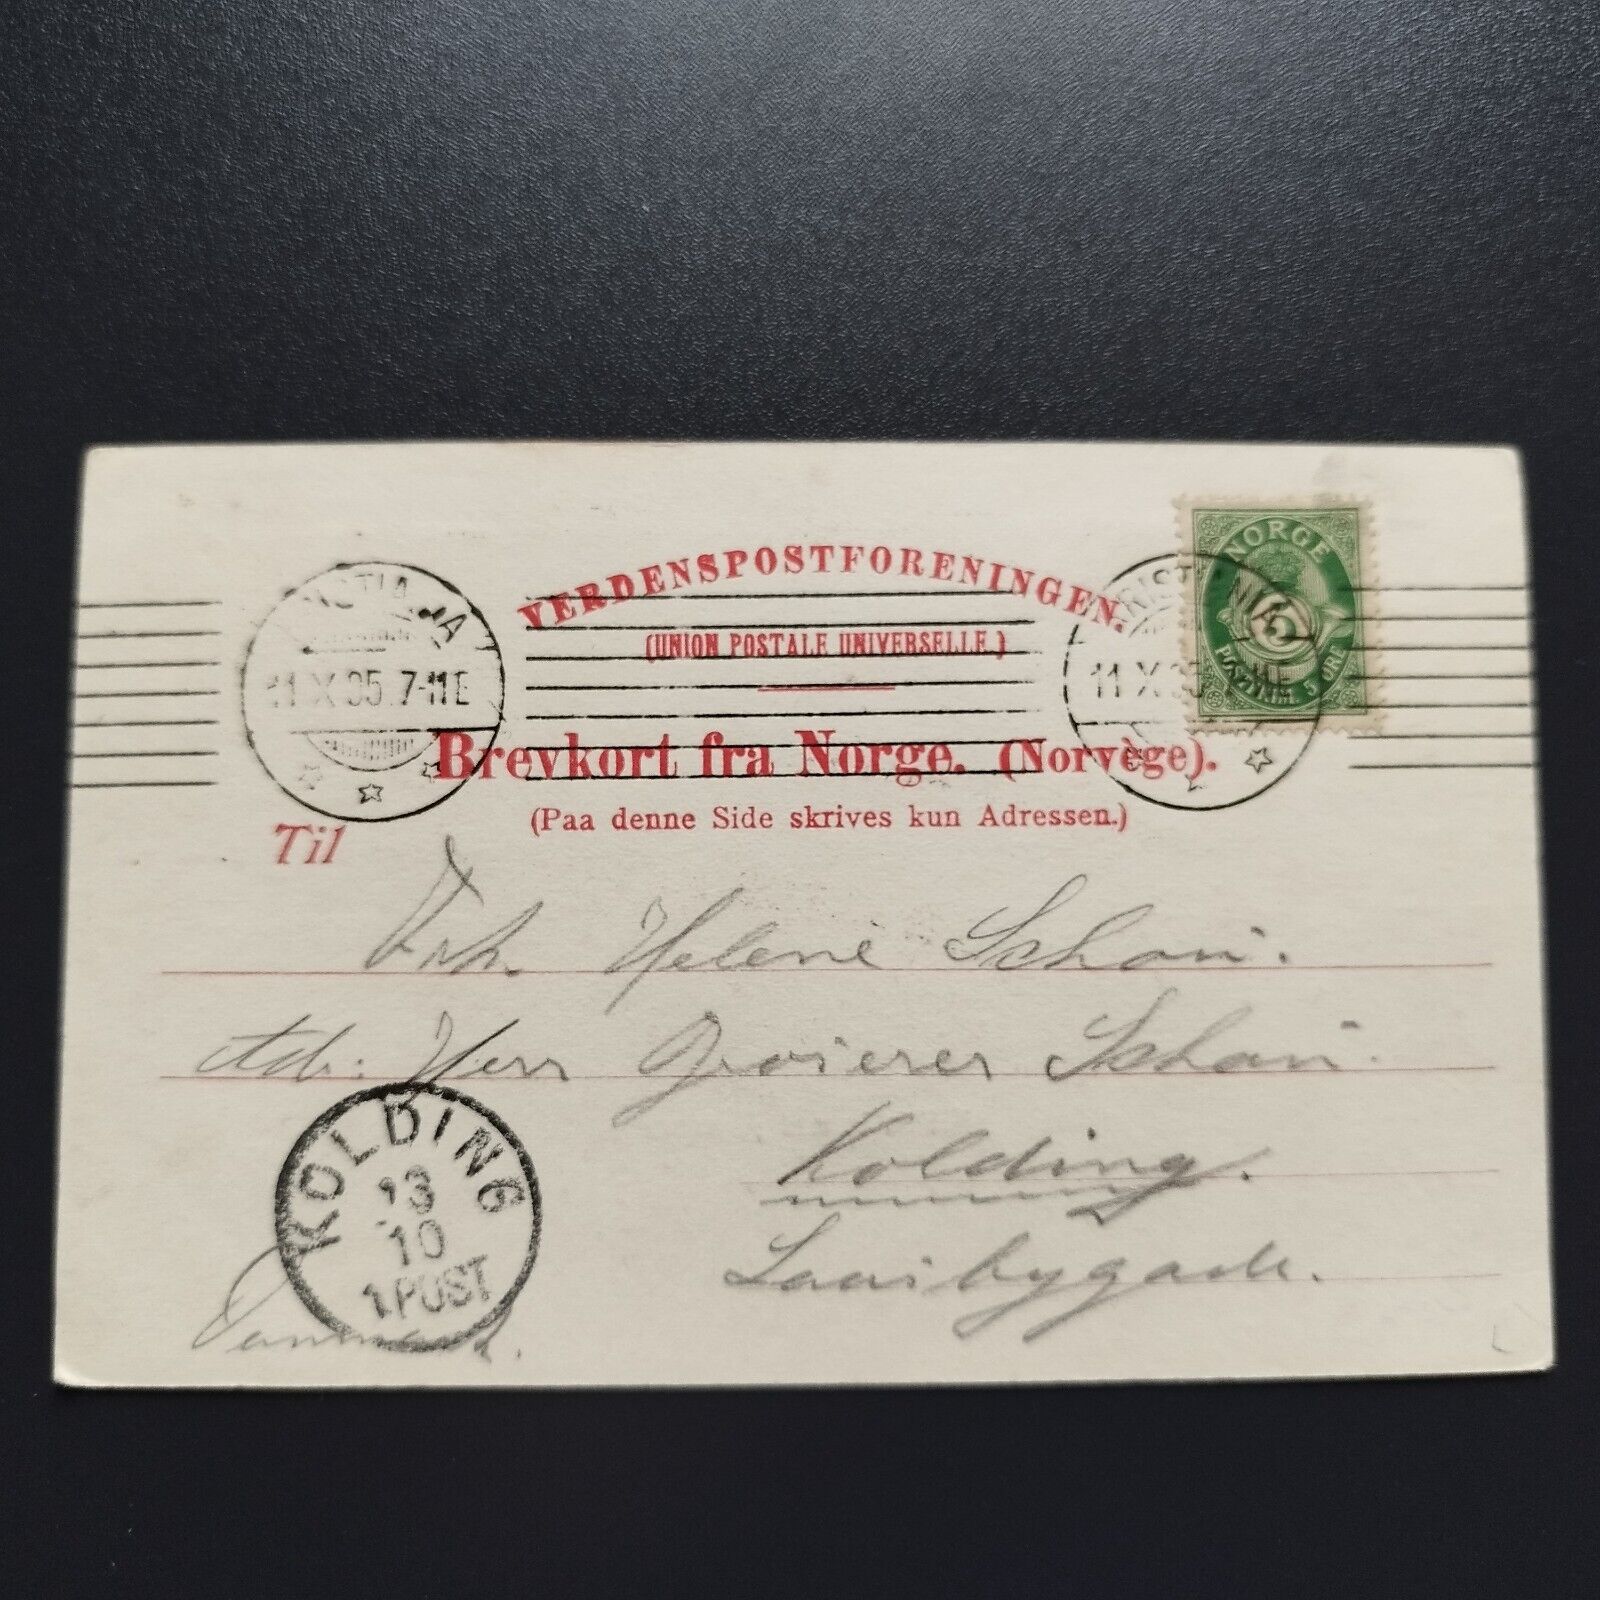 VERDENSPOSTFORENINGEN.
(UNION POSTALE UNIVERSELLE.)
NORGE
5
POSTFRIM. 5 ØRE
KRISTIANIA
11 X 05. 7-11 E
KRISTIANIA
11 X 05
Brevkort fra Norge. (Norvège).
(Paa denne Side skrives kun Adressen.)
Til
Frk. Helene Schou.
Adr: Herr Schou.
Kolding.
KOLDING
13
10
1.POST
Danmark.